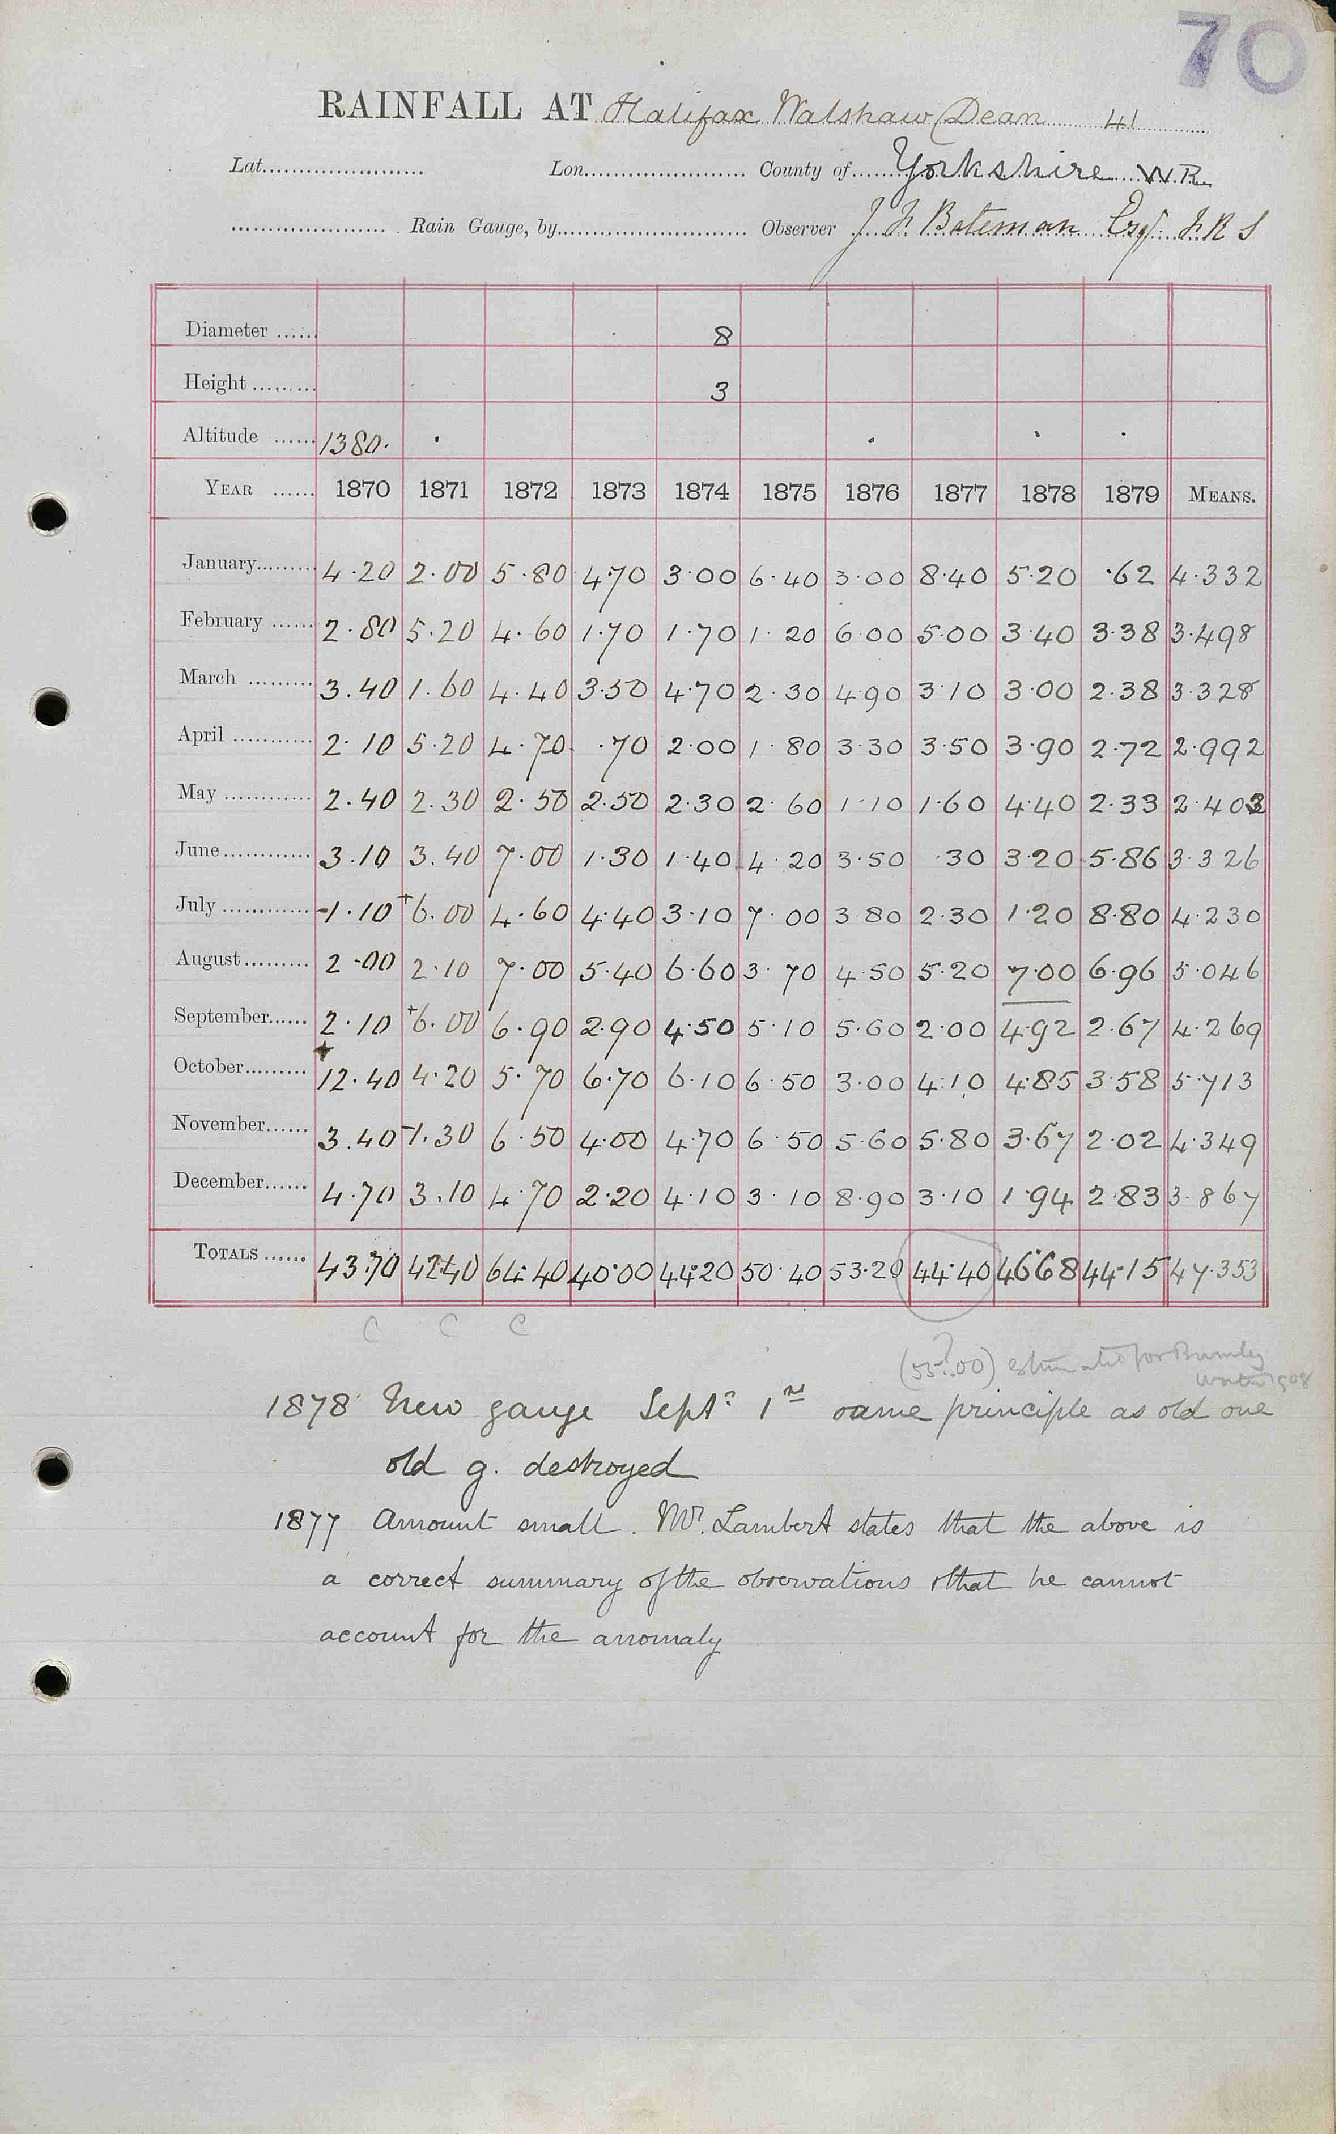 70
RAINFALL AT Halifax Walshaw Dean 41
Lat. Lon. County of Yorkshire W.R.
Rain Gauge, by Observer J. F. Bateman Esqr. F R S
Diameter 8
Height 3
Altitude 1380.
YEAR 1870 1871 1872 1873 1874 1875 1876 1877 1878 1879 MEANS.
January 4.20 2.00 5.80 4.70 3.00 6.40 3.00 8.40 5.20 .62 4.332
February 2.80 5.20 4.60 1.70 1.70 1.20 6.00 5.00 3.40 3.38 3.498
March 3.40 1.60 4.40 3.50 4.70 2.30 4.90 3.10 3.00 2.38 3.328
April 2.10 5.20 4.70 .70 2.00 1.80 3.30 3.50 3.90 2.72 2.992
May 2.40 2.30 2.50 2.50 2.30 2.60 1.10 1.60 4.40 2.33 2.403
June 3.10 3.40 7.00 1.30 1.40 4.20 3.50 .30 3.20 5.86 3.326
July -1.10 +6.00 4.60 4.40 3.10 7.00 3.80 2.30 1.20 8.80 4.230
August 2.00 2.10 7.00 5.40 6.60 3.70 4.50 5.20 7.00 6.96 5.046
September 2.10 +6.00 6.90 2.90 4.50 5.10 5.60 2.00 4.92 2.67 4.269
October +12.40 4.20 5.70 6.70 6.10 6.50 3.00 4.10 4.85 3.58 5.713
November 3.40 -1.30 6.50 4.00 4.70 6.50 5.60 5.80 3.67 2.02 4.349
December 4.70 3.10 4.70 2.20 4.10 3.10 8.90 3.10 1.94 2.83 3.867
TOTALS 43.70 42.40 64.40 40.00 44.20 50.40 53.20 44.40 46.68 44.15 47.353
C C C
(55?.00) estimated for Burnley
Water 1908
1878 New gauge Sept. 1st same principle as old one
old g. destroyed
1877 Amount small. Mr. Lambert states that the above is
a correct summary of the observations & that he cannot
account for the anomaly